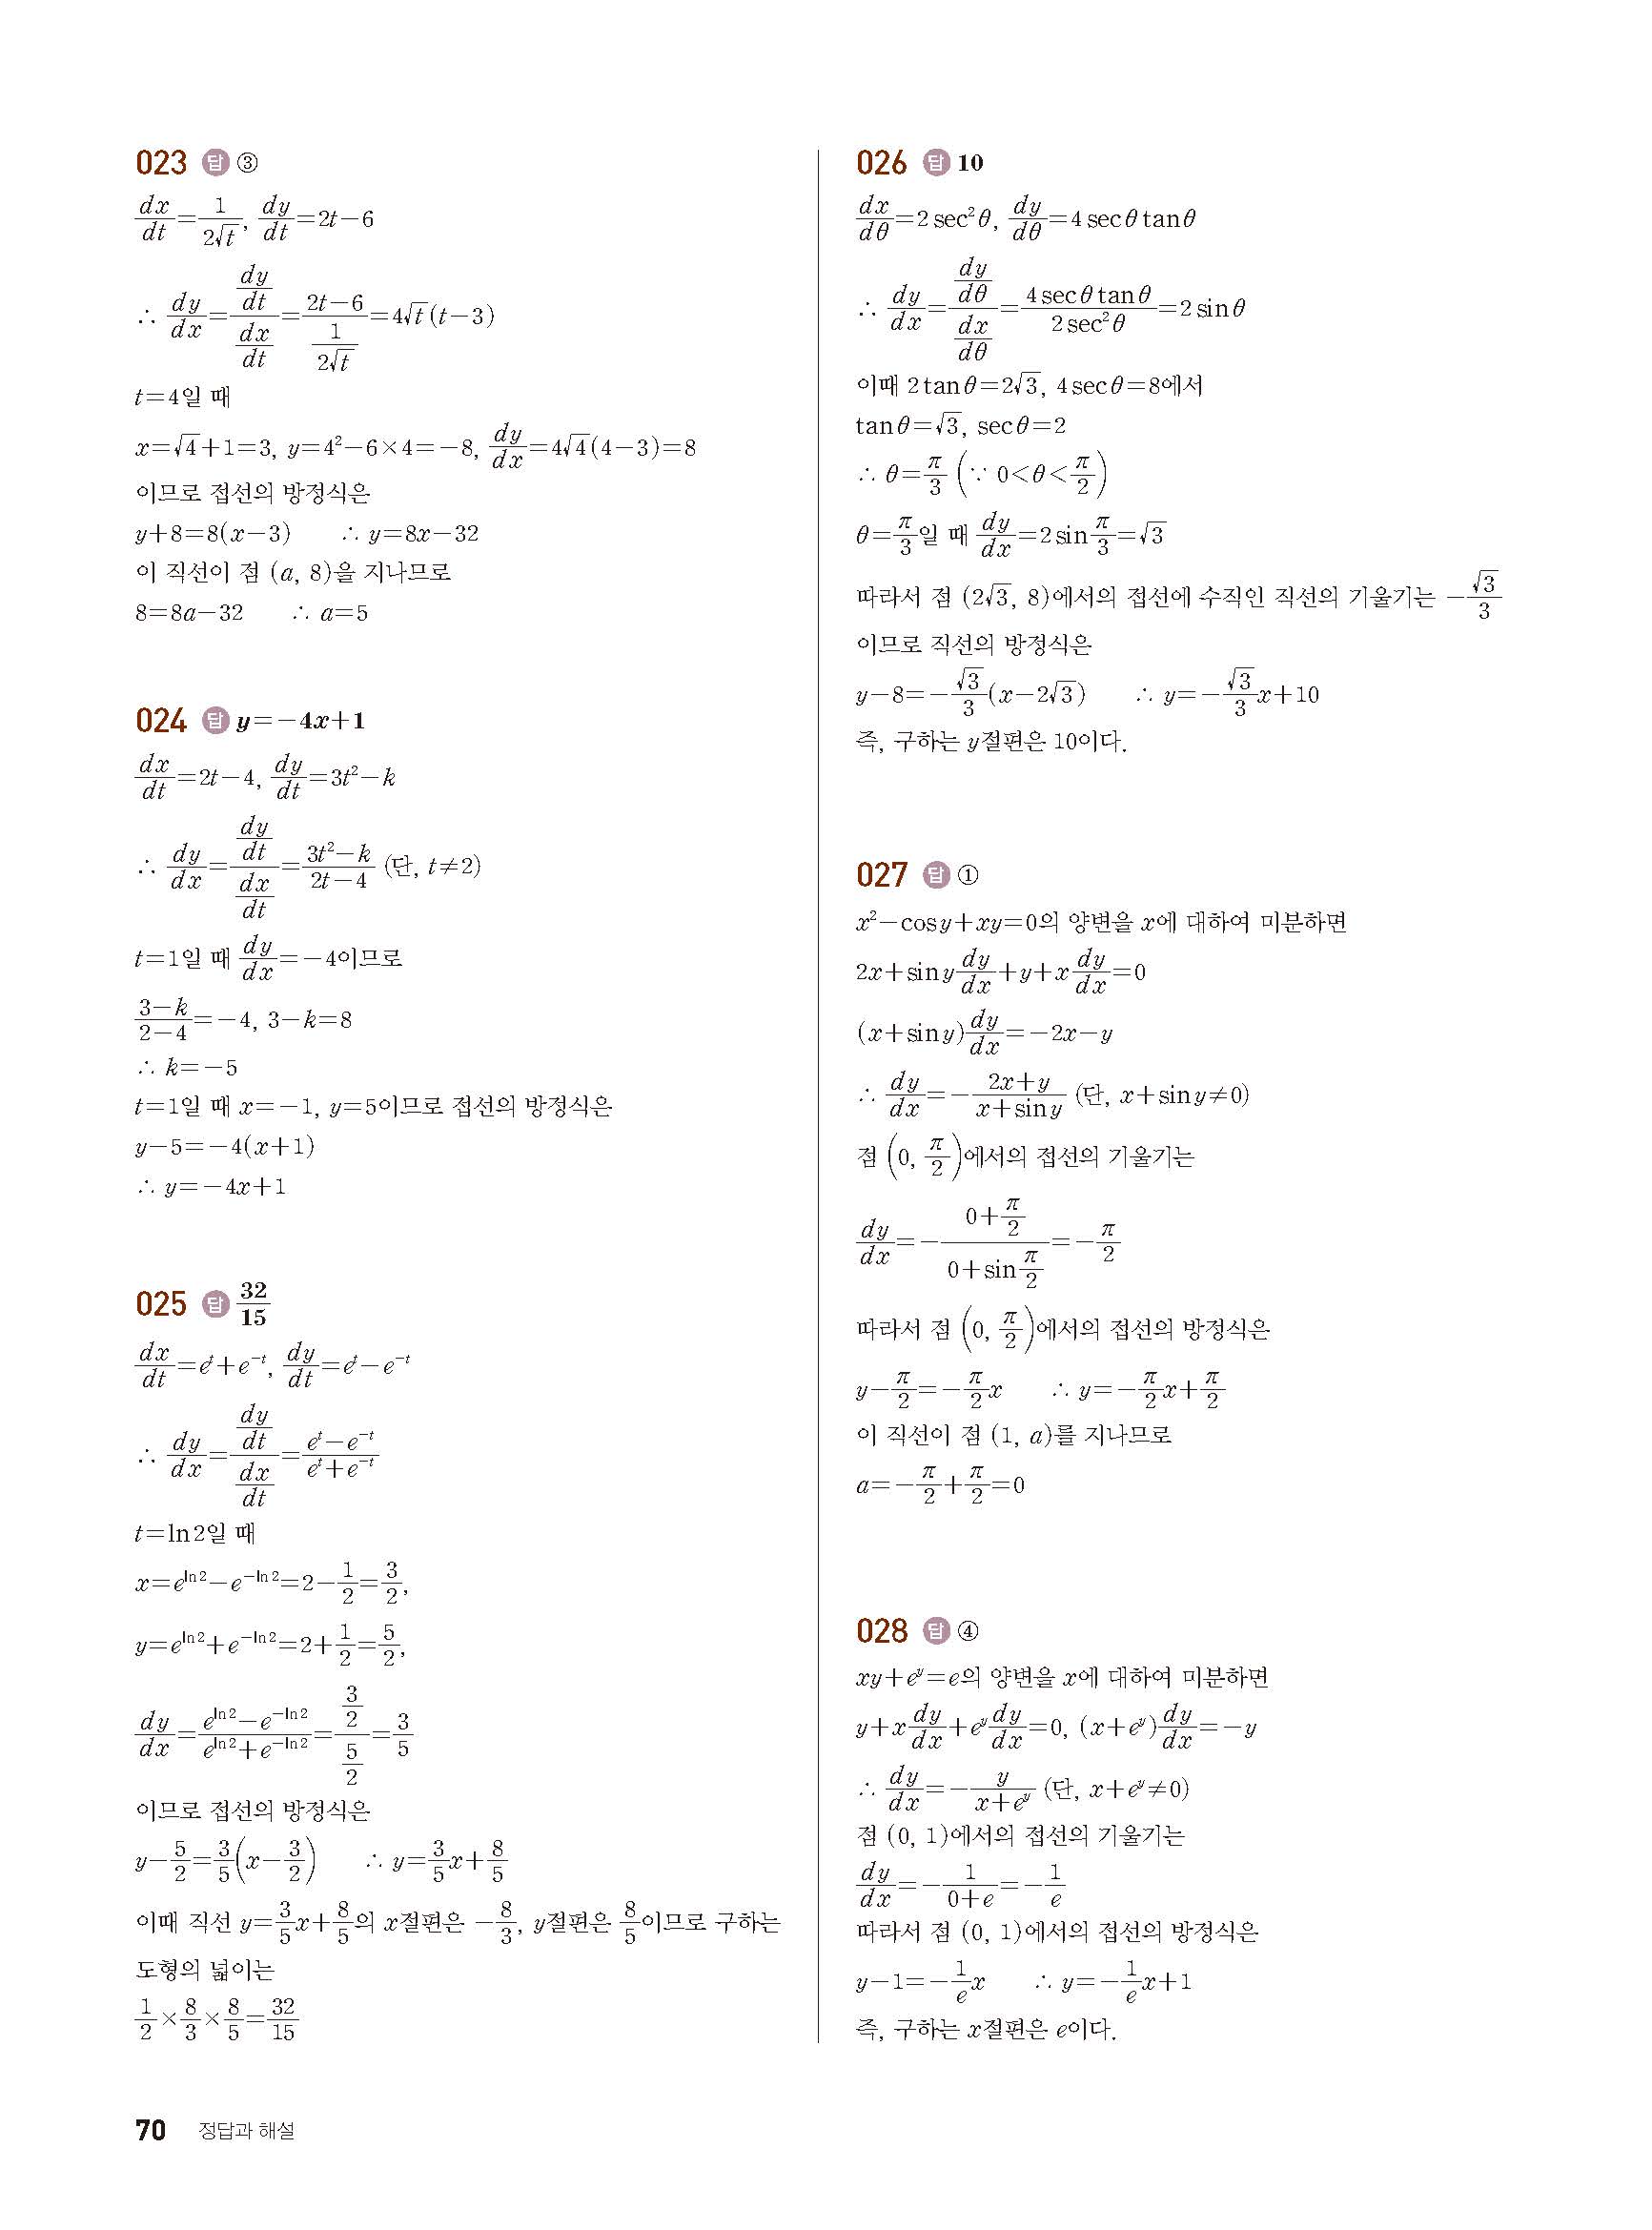 023 답 ③
dx/dt=1/(2√t), dy/dt=2t-6
∴ dy/dx=(dy/dt)/(dx/dt)=(2t-6)/(1/(2√t))=4√t(t-3)
t=4일 때
x=√4+1=3, y=4²-6×4=-8, dy/dx=4√4(4-3)=8
이므로 접선의 방정식은
y+8=8(x-3) ∴ y=8x-32
이 직선이 점 (a, 8)을 지나므로
8=8a-32 ∴ a=5
024 답 y=-4x+1
dx/dt=2t-4, dy/dt=3t²-k
∴ dy/dx=(dy/dt)/(dx/dt)=(3t²-k)/(2t-4) (단, t≠2)
t=1일 때 dy/dx=-4이므로
(3-k)/(2-4)=-4, 3-k=8
∴ k=-5
t=1일 때 x=-1, y=5이므로 접선의 방정식은
y-5=-4(x+1)
∴ y=-4x+1
025 답 32/15
dx/dt=e^t+e^(-t), dy/dt=e^t-e^(-t)
∴ dy/dx=(dy/dt)/(dx/dt)=(e^t-e^(-t))/(e^t+e^(-t))
t=ln2일 때
x=e^(ln2)-e^(-ln2)=2-1/2=3/2,
y=e^(ln2)+e^(-ln2)=2+1/2=5/2,
dy/dx=(e^(ln2)-e^(-ln2))/(e^(ln2)+e^(-ln2))=(3/2)/(5/2)=3/5
이므로 접선의 방정식은
y-5/2=3/5(x-3/2) ∴ y=3/5x+8/5
이때 직선 y=3/5x+8/5의 x절편은 -8/3, y절편은 8/5이므로 구하는
도형의 넓이는
1/2×8/3×8/5=32/15
026 답 10
dx/dθ=2sec²θ, dy/dθ=4secθtanθ
∴ dy/dx=(dy/dθ)/(dx/dθ)=(4secθtanθ)/(2sec²θ)=2sinθ
이때 2tanθ=2√3, 4secθ=8에서
tanθ=√3, secθ=2
∴ θ=π/3 (∵ 0<θ<π/2)
θ=π/3일 때 dy/dx=2sin π/3=√3
따라서 점 (2√3, 8)에서의 접선에 수직인 직선의 기울기는 -√3/3
이므로 직선의 방정식은
y-8=-√3/3(x-2√3) ∴ y=-√3/3x+10
즉, 구하는 y절편은 10이다.
027 답 ①
x²-cosy+xy=0의 양변을 x에 대하여 미분하면
2x+siny dy/dx+y+x dy/dx=0
(x+siny)dy/dx=-2x-y
∴ dy/dx=-(2x+y)/(x+siny) (단, x+siny≠0)
점 (0, π/2)에서의 접선의 기울기는
dy/dx=-(0+π/2)/(0+sin π/2)=-π/2
따라서 점 (0, π/2)에서의 접선의 방정식은
y-π/2=-π/2x ∴ y=-π/2x+π/2
이 직선이 점 (1, a)를 지나므로
a=-π/2+π/2=0
028 답 ④
xy+e^y=e의 양변을 x에 대하여 미분하면
y+x dy/dx+e^y dy/dx=0, (x+e^y)dy/dx=-y
∴ dy/dx=-y/(x+e^y) (단, x+e^y≠0)
점 (0, 1)에서의 접선의 기울기는
dy/dx=-1/(0+e)=-1/e
따라서 점 (0, 1)에서의 접선의 방정식은
y-1=-1/e x ∴ y=-1/e x+1
즉, 구하는 x절편은 e이다.
70 정답과 해설